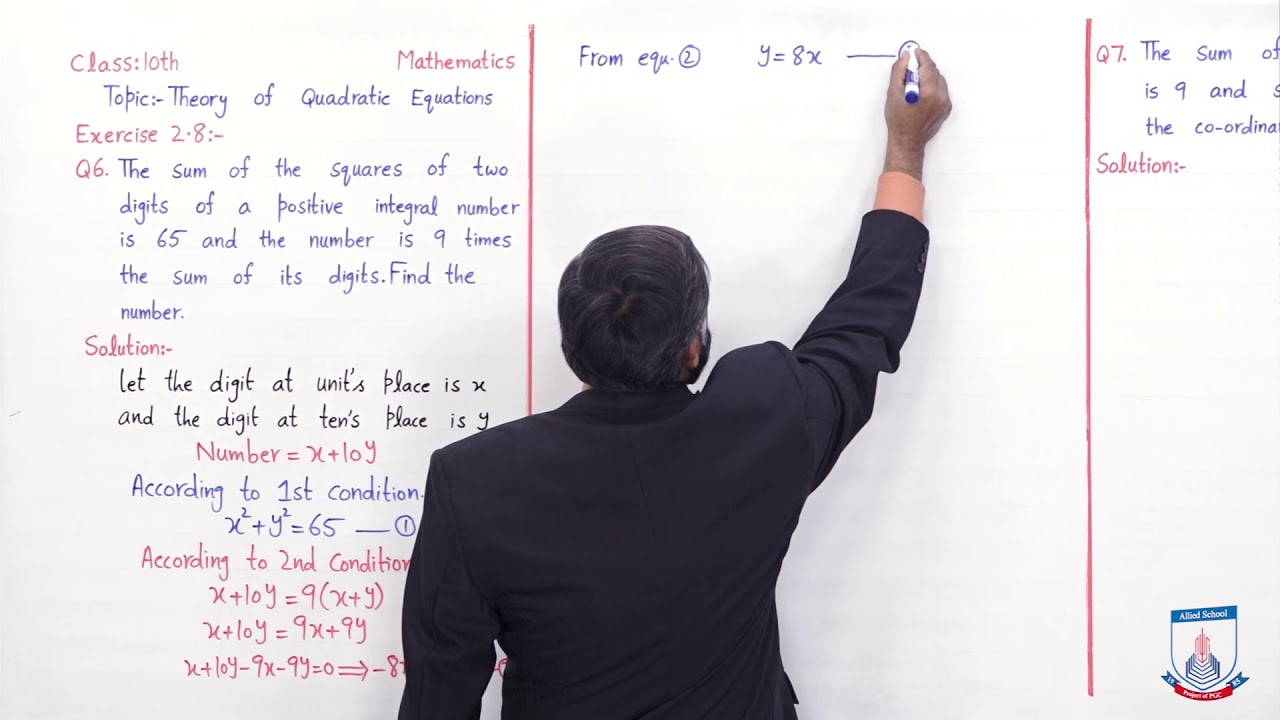 Class:10th Mathematics
Topic:- Theory of Quadratic Equations
Exercise 2.8:-
Q6. The sum of the squares of two
digits of a positive integral number
is 65 and the number is 9 times
the sum of its digits. Find the
number.
Solution:-
let the digit at unit's place is x
and the digit at ten's place is y
Number = x+10y
According to 1st condition.
x²+y²=65 — ①
According to 2nd condition
x+10y = 9(x+y)
x+10y = 9x+9y
x+10y-9x-9y=0 ⟹ -8x
From equ.② y=8x —
Q7. The sum of
is 9 and
the co-ordina
Solution:-
Allied School
19 85
Project of PGC